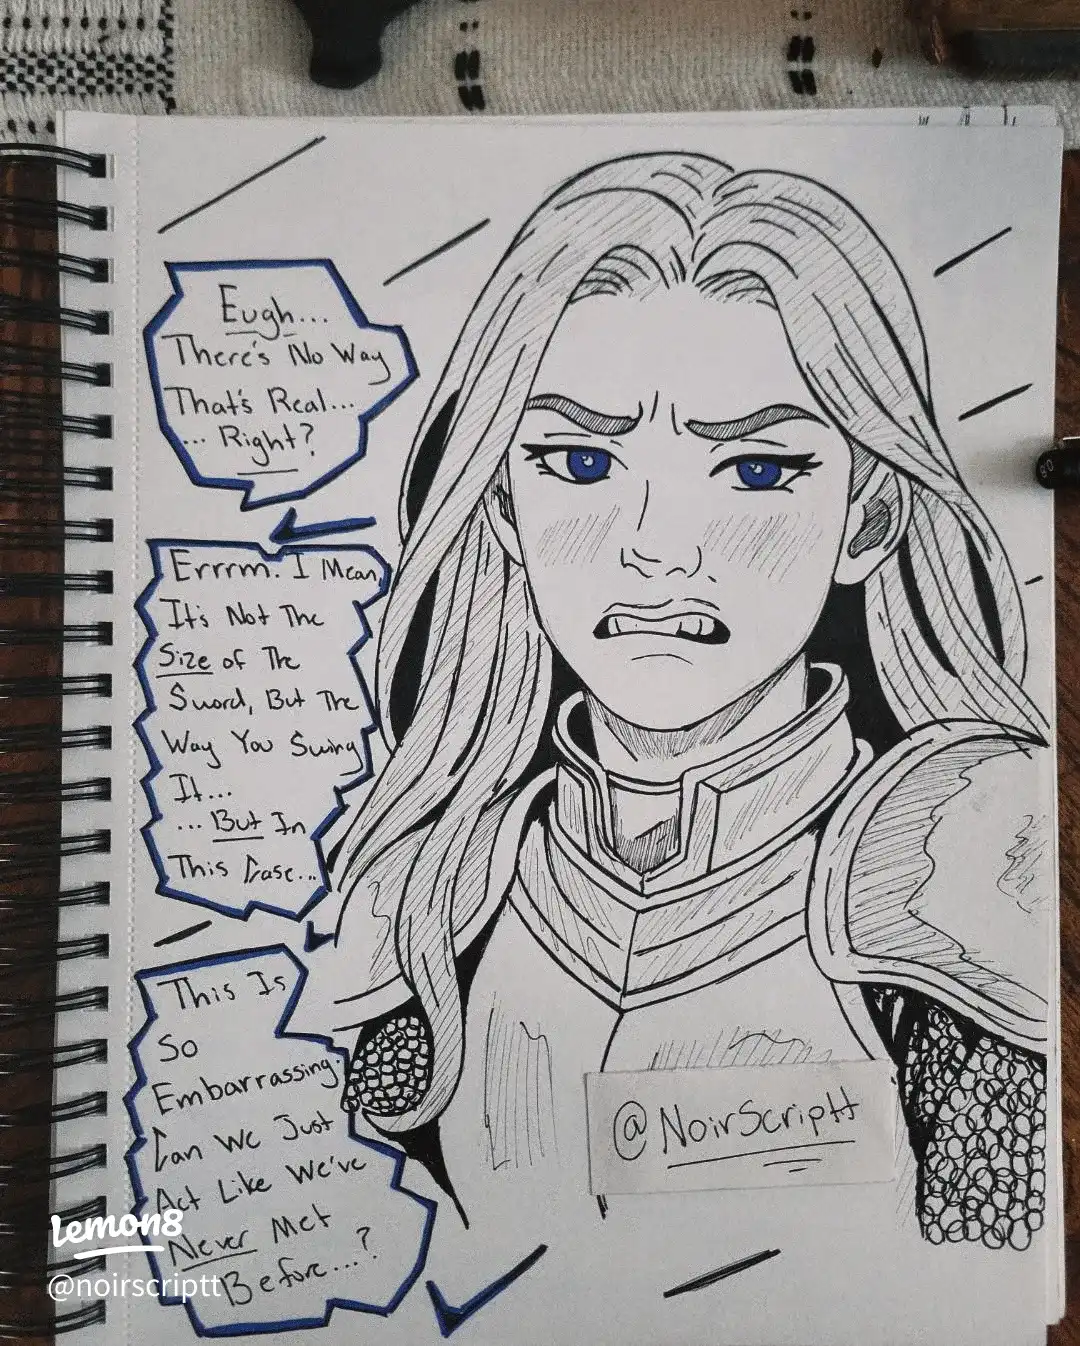 Eugh...
There's No Way
That's Real...
... Right?
Errrm. I Mean,
It's Not The
Size of The
Sword, But The
Way You Swing
It...
... But In
This Case...
This Is
So
Embarrassing.
Can We Just
Act Like We've
Never Met
Before...?
@NoirScriptt
lemon8
@noirscriptt
80